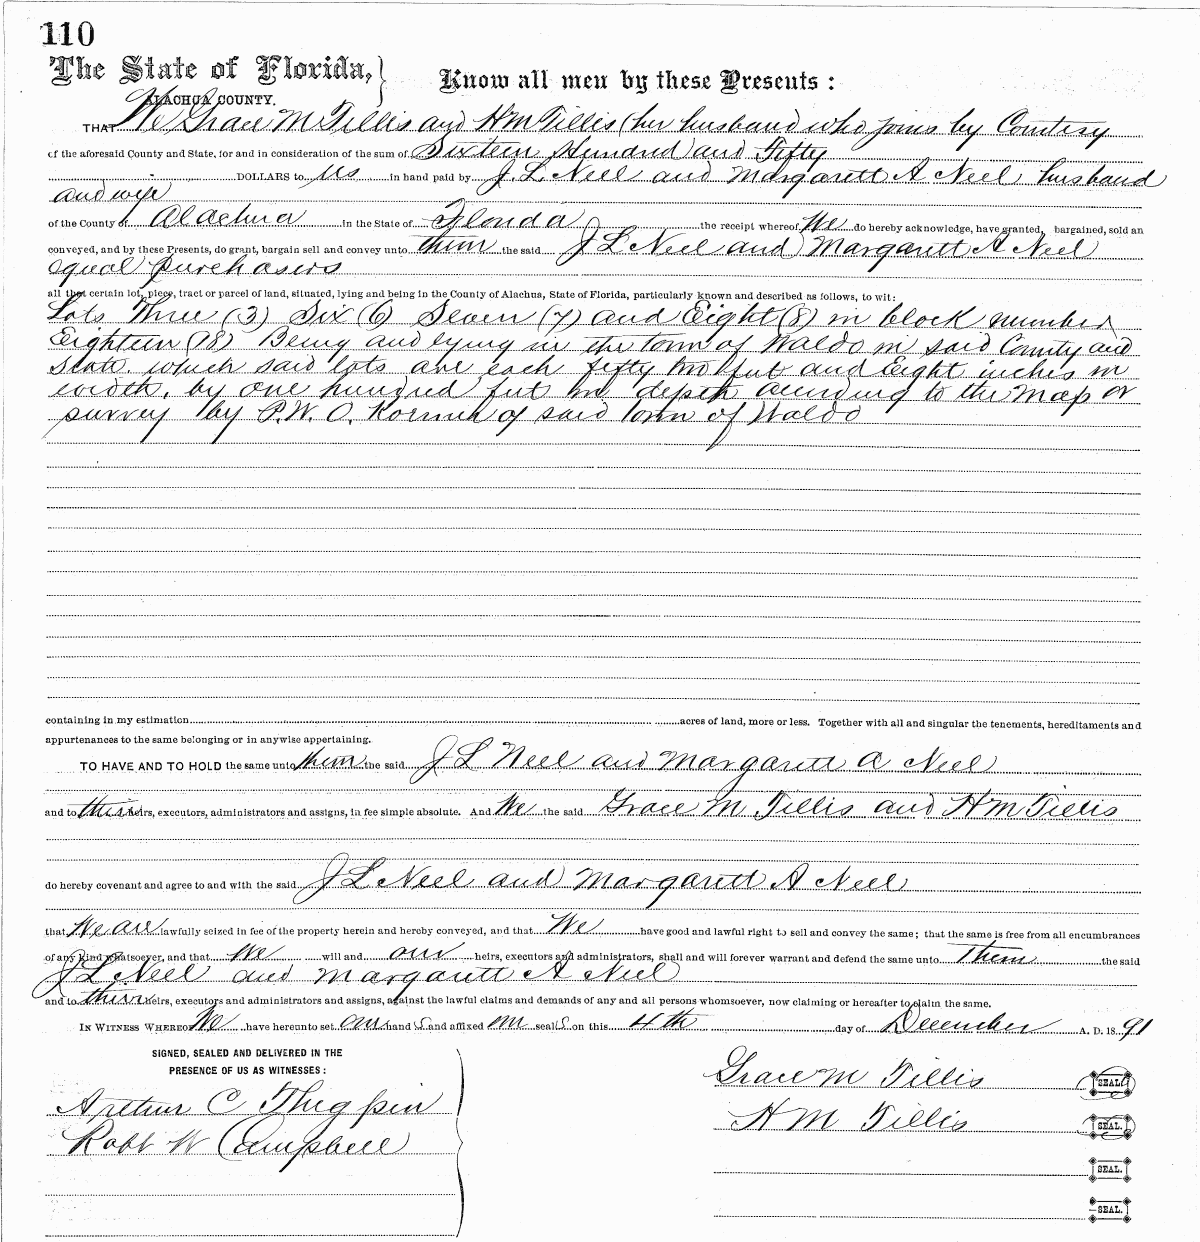 110
The State of Florida,
ALACHUA COUNTY.
Know all men by these Presents:
THAT We Grace M Tillis and H M Tillis (her husband who joins by Courtesy
of the aforesaid County and State, for and in consideration of the sum of Sixteen Hundred and Fifty
DOLLARS to us in hand paid by J. L. Neel and Margarett A Neel husband
and wife
of the County of Alachua in the State of Florida the receipt whereof We do hereby acknowledge, have granted, bargained, sold an
conveyed, and by these Presents, do grant, bargain sell and convey unto them the said J L Neel and Margarett A Neel
equal purchasers
all that certain lot, piece, tract or parcel of land, situated, lying and being in the County of Alachua, State of Florida, particularly known and described as follows, to wit:
Lots Three (3) Six (6) Seven (7) and Eight (8) in block number
Eighteen (18) Being and lying in the town of Waldo in said County and
State. which said lots are each fifty two feet and Eight inches in
width, by one hundred feet in depth according to the Map or
survey by P. W. O. of said town of Waldo
containing in my estimation acres of land, more or less. Together with all and singular the tenements, hereditaments and
appurtenances to the same belonging or in anywise appertaining.
TO HAVE AND TO HOLD the same unto them the said J L Neel and Margarett A Neel
and to their heirs, executors, administrators and assigns, in fee simple absolute. And We the said Grace M Tillis and H M Tillis
do hereby covenant and agree to and with the said J L Neel and Margarett A Neel
that We are lawfully seized in fee of the property herein and hereby conveyed, and that We have good and lawful right to sell and convey the same; that the same is free from all encumbrances
of any kind whatsoever, and that We will and our heirs, executors and administrators, shall and will forever warrant and defend the same unto Them the said
J L Neel and Margarett A Neel
and to their heirs, executors and administrators and assigns, against the lawful claims and demands of any and all persons whomsoever, now claiming or hereafter to claim the same.
IN WITNESS WHEREOF We have hereunto set our hand s and affixed our seal s on this 4th day of December A. D. 18 91
SIGNED, SEALED AND DELIVERED IN THE
PRESENCE OF US AS WITNESSES:
Arthur C Thigpin
Robt W Campbell
Grace M Tillis SEAL
H M Tillis SEAL.
SEAL.
SEAL.